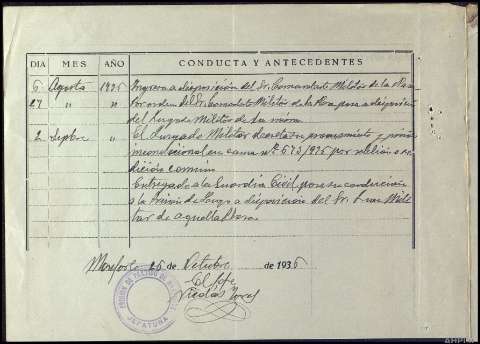 DIA MES AÑO CONDUCTA Y ANTECEDENTES
6 Agosto 1936 Ingresa a disposición del Sr. Comandante Militar de la Plaza
27 " " Por orden del Sr. Comandante Militar de la Plaza pasa a disposición
del Juzgado Militar de la misma
2 Septbre " El Juzgado Militar decreta su procesamiento y prisión
incondicional en causa nº 573/936 por rebelión o se-
dición común
Entregado a la Guardia Civil para su conducción
a la Prisión de Lugo a disposición del Sr. Juez Mili-
tar de aquella Plaza
Monforte 26 de Octubre de 1936
El Jefe
PRISION DE PARTIDO DE
JEFATURA
AHPL